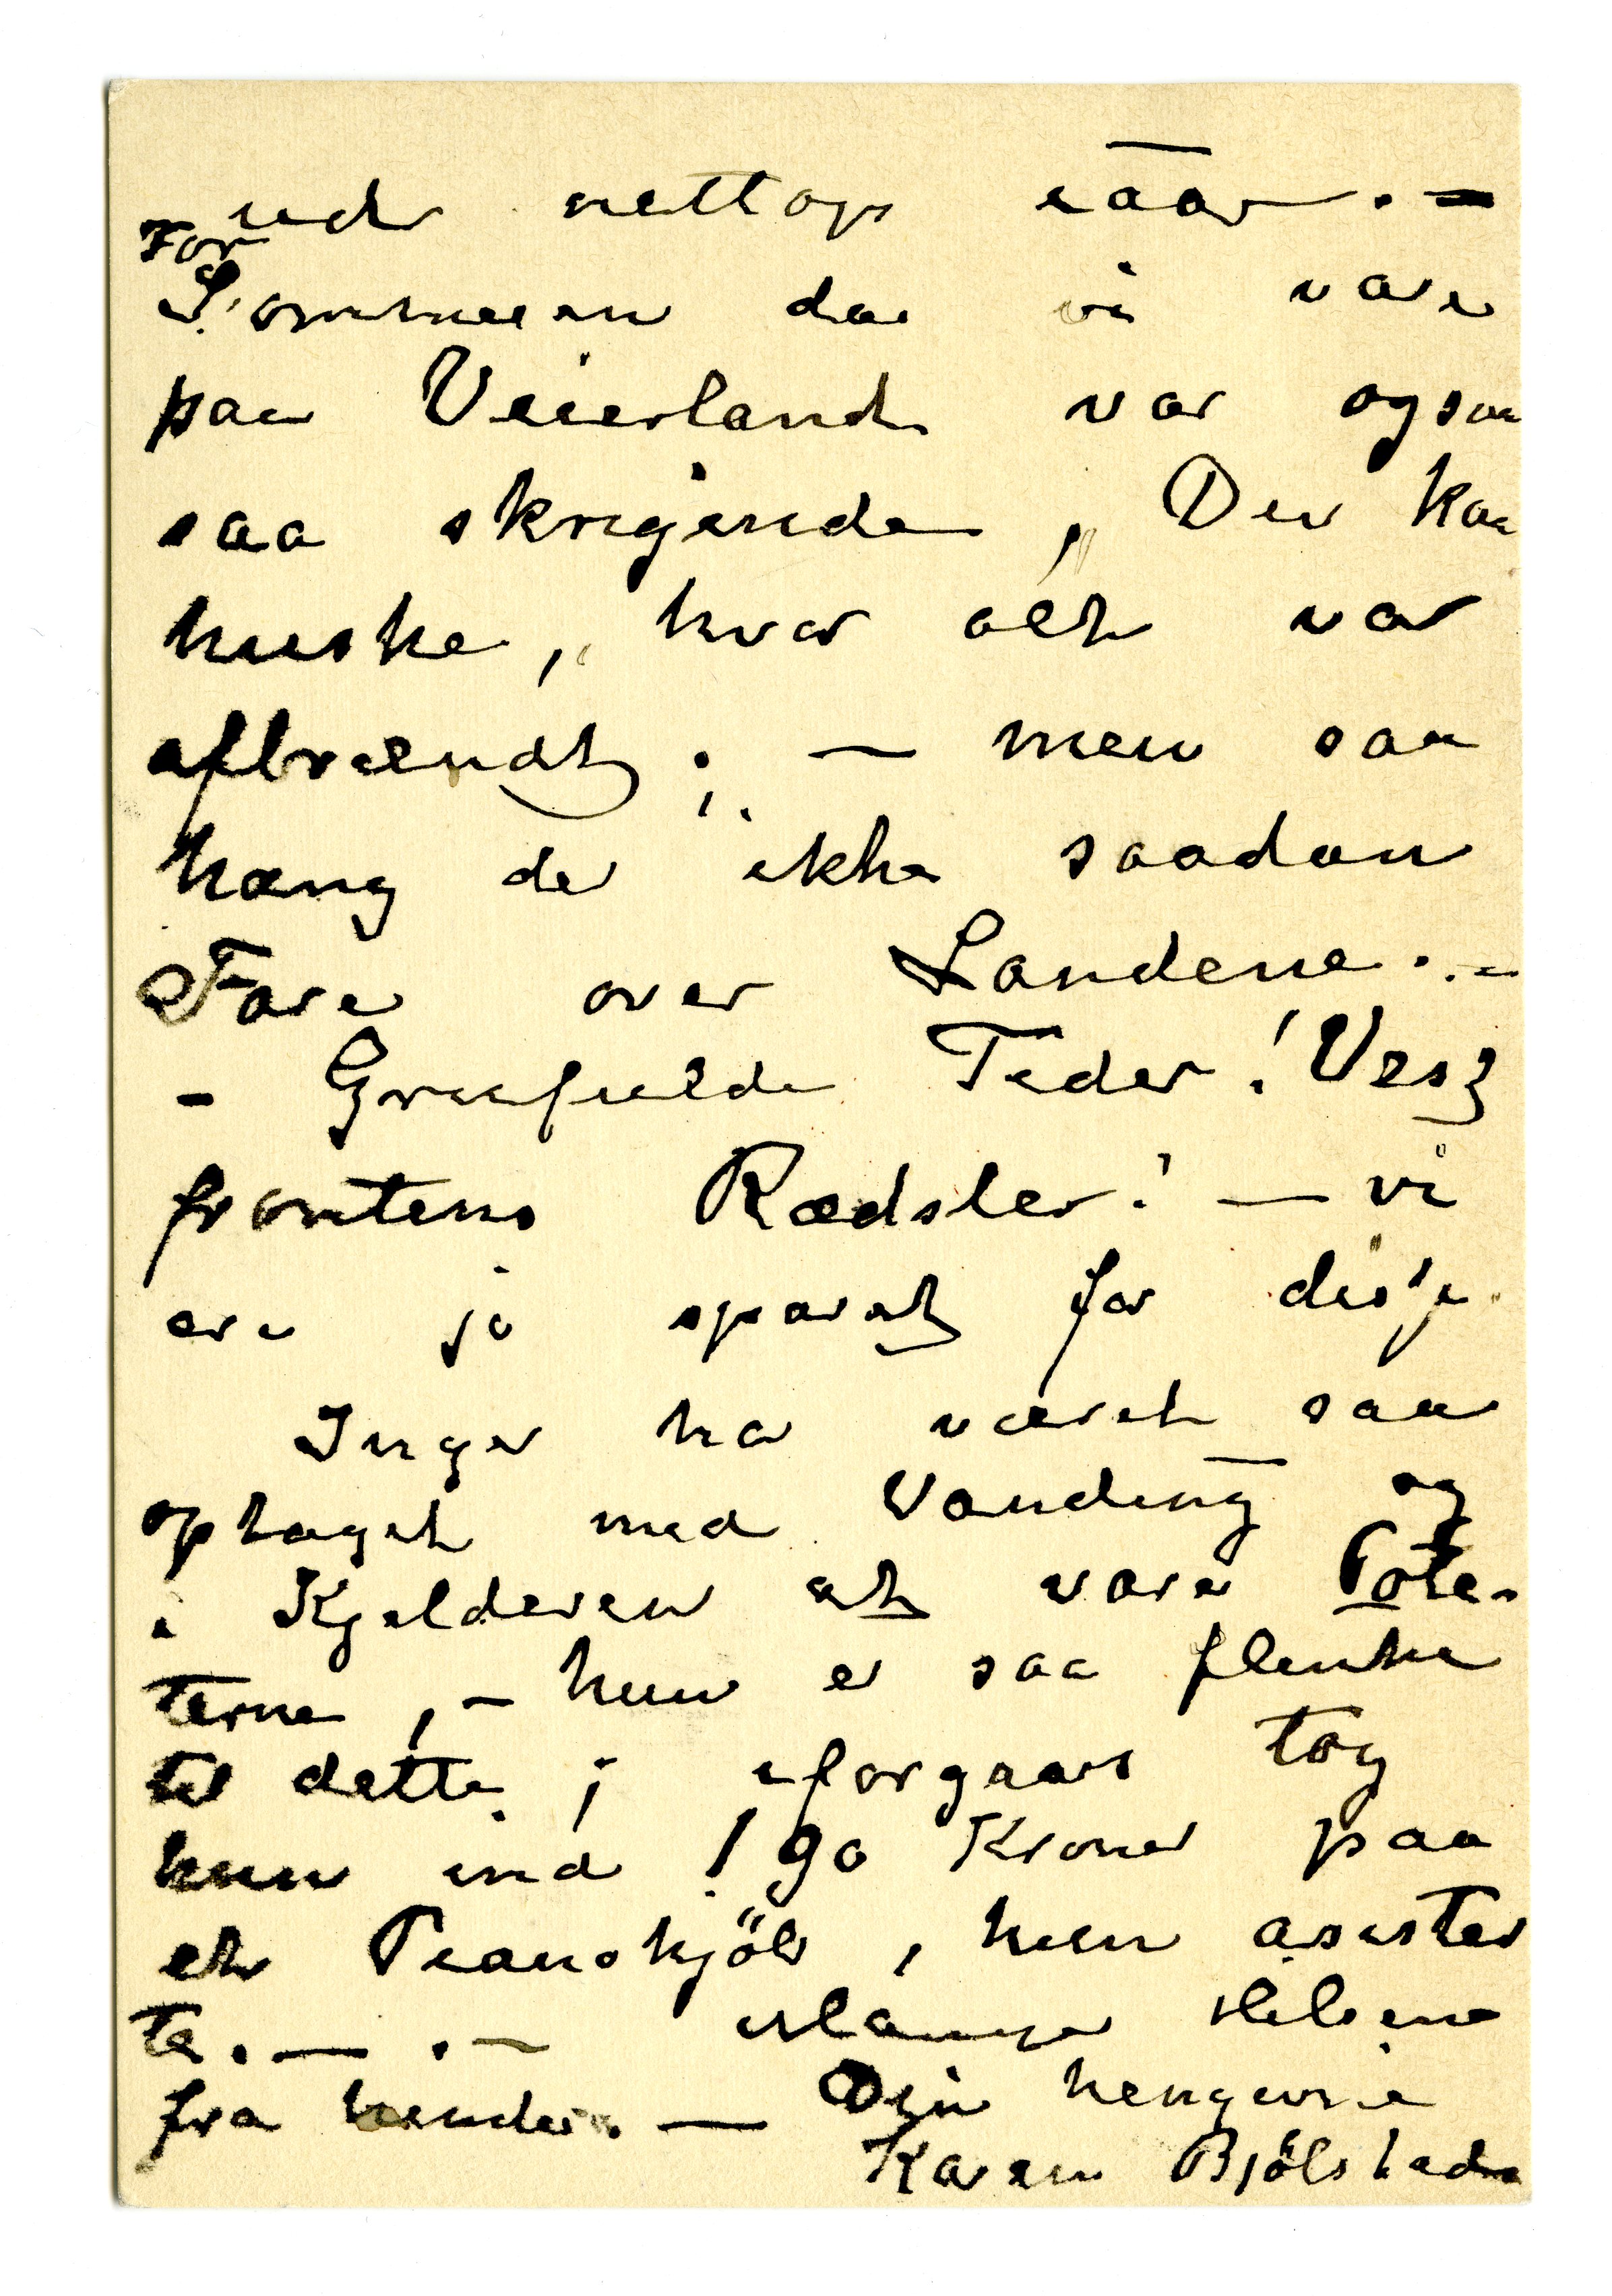 ud nettop iaar. –
For
Sommeren da vi vare
paa Veierland var ogsaa
saa skrigende, Du kan
huske, hvor alt var
afbrændt; – men saa
hang der ikke saadan
Fare over Landene. –
– Grufulde Tider! Vest
frontens Rædsler! – vi
ere jo sparet for disse
Inger har været saa
optaget med Vanding og
i Kjelderen at vare Pote-
terne, – hun er saa flink
til dette; iforgaars tog
hun ind 190 Kroner paa
et Pianokjöb, hun asister
te. – . – Hilsene
fra hende. – Din hengivne
Karen Bjölstad